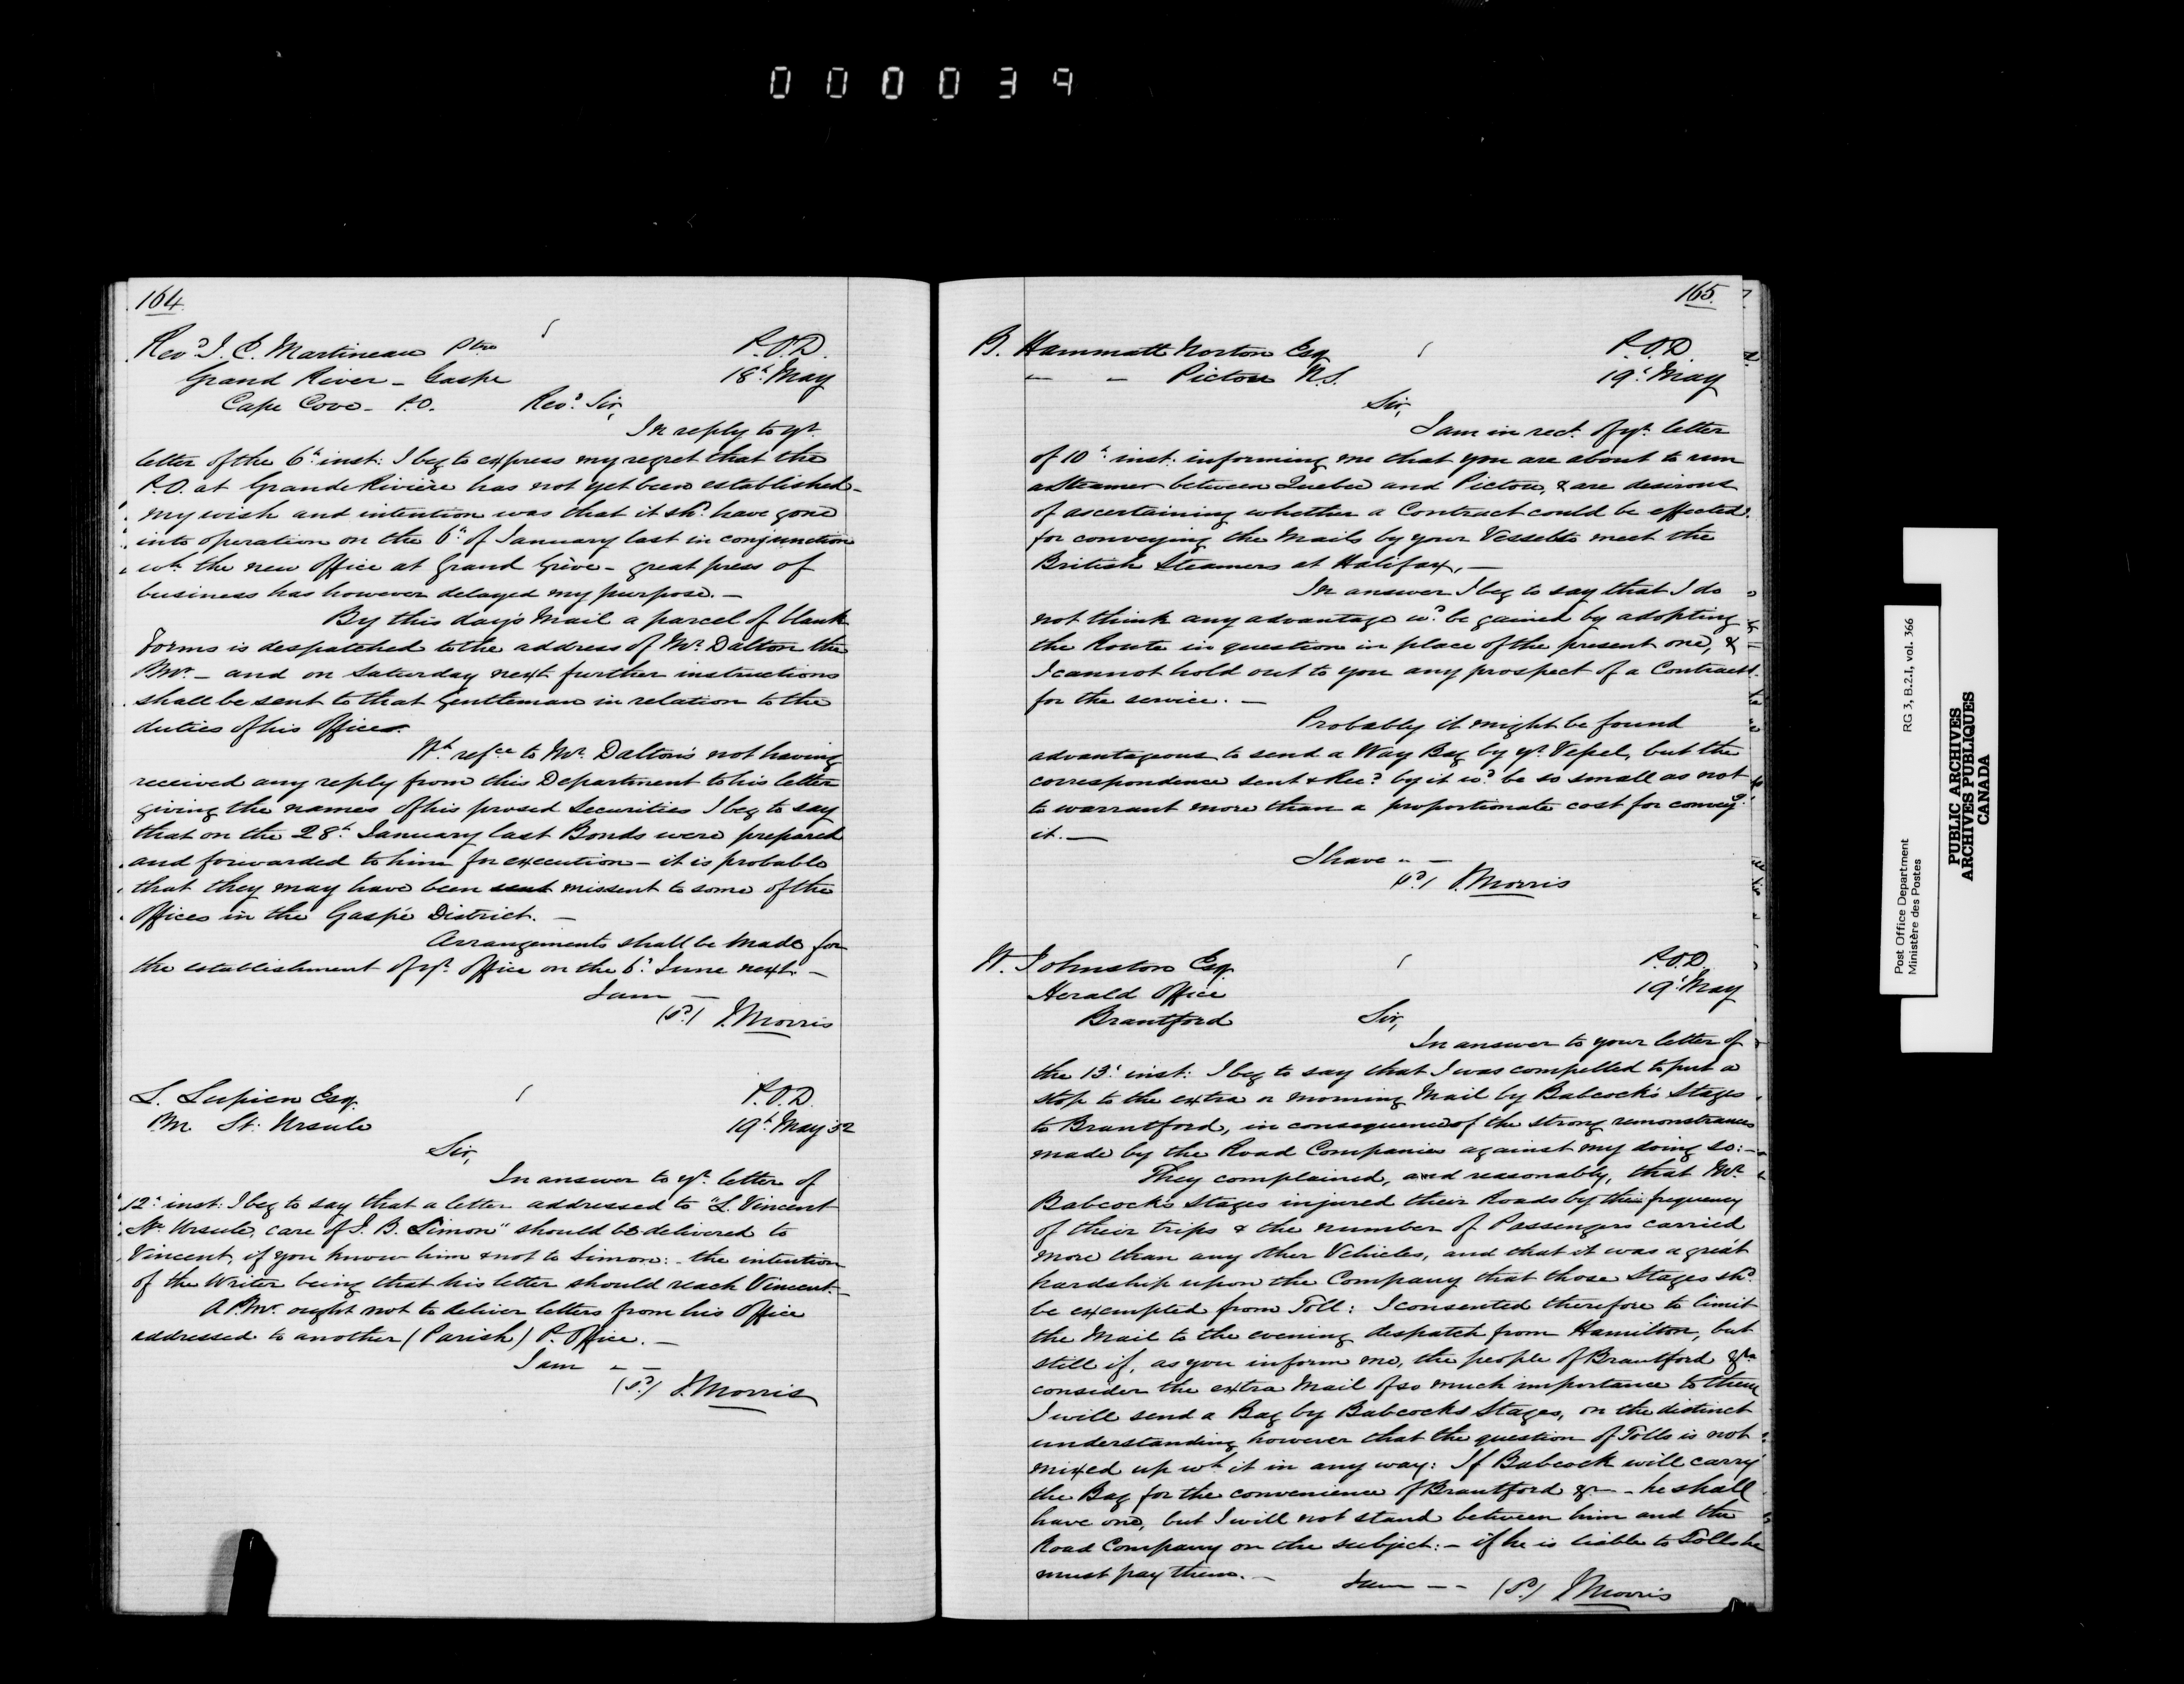 000039
164
Revd. J. C. Martineau Ptre
P.O.D.
Grand River - Gaspe
18th May
Cape Cove - P.O.
Revd. Sir,
In reply to yr.
letter of the 6th inst: I beg to express my regret that the
P.O. at Grande Rivière has not yet been established -
my wish and intention was that it shd. have gone
into operation on the 6th of January last in conjunction
wh. the new Office at Grand Grève - great press of
business has however delayed my purpose. -
By this day's Mail a parcel of blank
Forms is despatched to the address of Mr. Dalton the
PMr. - and on Saturday next further instructions
shall be sent to that Gentleman in relation to the
duties of his Office.
Wh. refce to Mr. Dalton's not having
received any reply from this Department to his letter
giving the names of his prosed Securities I beg to say
that on the 28th January last Bonds were prepared
and forwarded to him for execution - it is probable
that they may have been sent missent to some of the
Offices in the Gaspé District. -
Arrangements shall be made for
the establishment of yr. Office on the 6th June next. -
I am -
(sd.) J. Morris
L. Lupien Esq.
P.O.D.
P.M. St. Ursule
19th May 52
Sir,
In answer to yr. letter of
12th inst: I beg to say that a letter addressed to "L. Vincent
St. Ursule, care of J. B. Simon" should be delivered to
Vincent, if you know him & not to Simon: - the intention
of the Writer being that his letter should reach Vincent. -
A P.Mr. ought not to deliver letters from his Office
addressed to another (Parish) P. Office. -
I am " -
(sd.) J. Morris
165.
B. Hammatt Norton Esq
P.O.D.
" - Pictou N.S.
19th May
Sir,
I am in rect. of yr. letter
of 10th inst. informing me that you are about to run
a Steamer between Quebec and Pictou, & are desirous
of ascertaining whether a Contract could be effected
for conveying the Mails by your Vessel to meet the
British Steamers at Halifax. -
In answer I beg to say that I do
not think any advantage wd. be gained by adopting
the Route in question in place of the present one, &
I cannot hold out to you any prospect of a Contract
for the service. -
Probably it might be found
advantageous to send a Way Bag by yr. Vessel, but the
correspondence sent & Recd. by it wd. be so small as not
to warrant more than a proportionate cost for conveyg.
it. -
I have " -
(sd.) J. Morris
W. Johnston Esq.
P.O.D.
Herald Office
19th May
Brantford
Sir,
In answer to your letter of
the 13th inst: I beg to say that I was compelled to put a
stop to the extra or morning Mail by Babcock's Stages
to Brantford, in consequence of the strong remonstrances
made by the Road Companies against my doing so: -
They complained, and reasonably, that Mr.
Babcock's Stages injured their Roads by the frequency
of their trips & the number of Passengers carried
more than any other Vehicles, and that it was a great
hardship upon the Company that those Stages shd.
be exempted from Toll: I consented therefore to limit
the Mail to the evening despatch from Hamilton, but
still if, as you inform me, the people of Brantford &ca
consider the extra Mail of so much importance to them
I will send a Bag by Babcocks Stages, on the distinct
understanding however that the question of Tolls is not
mixed up wh. it in any way: If Babcock will carry
the Bag for the convenience of Brantford &c - he shall
have one, but I will not stand between him and the
Road Company on the subject: - if he is liable to Tolls he
must pay them. -
I am - - (sd.) J. Morris
Post Office Department
Ministère des Postes
RG 3, B.2.1, vol. 366
PUBLIC ARCHIVES
ARCHIVES PUBLIQUES
CANADA